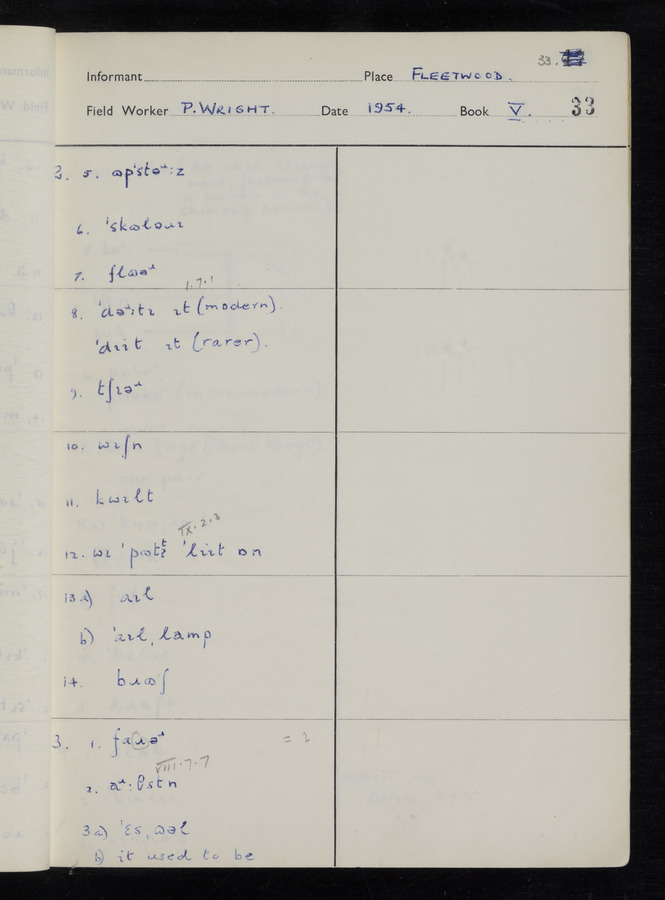 33.
Informant Place FLEETWOOD.
Field Worker P. WRIGHT. Date 1954. Book V. 33
2. 5. ɷpˈstəʴːz
6. ˈskɷlǝuɹ
7. flɷəʴ
1.7.1
8. ˈdəʴːtɪ ɪt (modern).
ˈdɪit ɪt (rarer).
9. tʃɪəʴ
10. wɪʃn
11. kwɪlt
IX.2.2
12. wɪ ˈpɷtɪ ˈlɪit ɒn
13 a) aɪl
b) ˈaɪl ˌlamp
14. bɹɷʃ
3. 1. faɪəʴ = 2
VIII.7.7
2. aʴːθstn
3 a) ˈɛsˌɷəl
b) it used to be